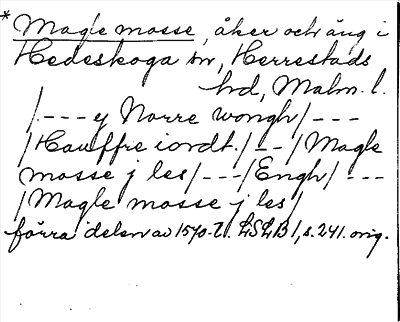 * Magle mosse, åker och äng i
Hedeskoga sn, Herrestads
hd, Malm. l.
/. - - - y Norre wongh / - - -
/ Hauffre iordt. / - - / Magle
mosse j les / - - - / Engh / - - -
/ Magle mosse j les /
förra delen av 1570-t. LSLB 1, s. 241. orig.